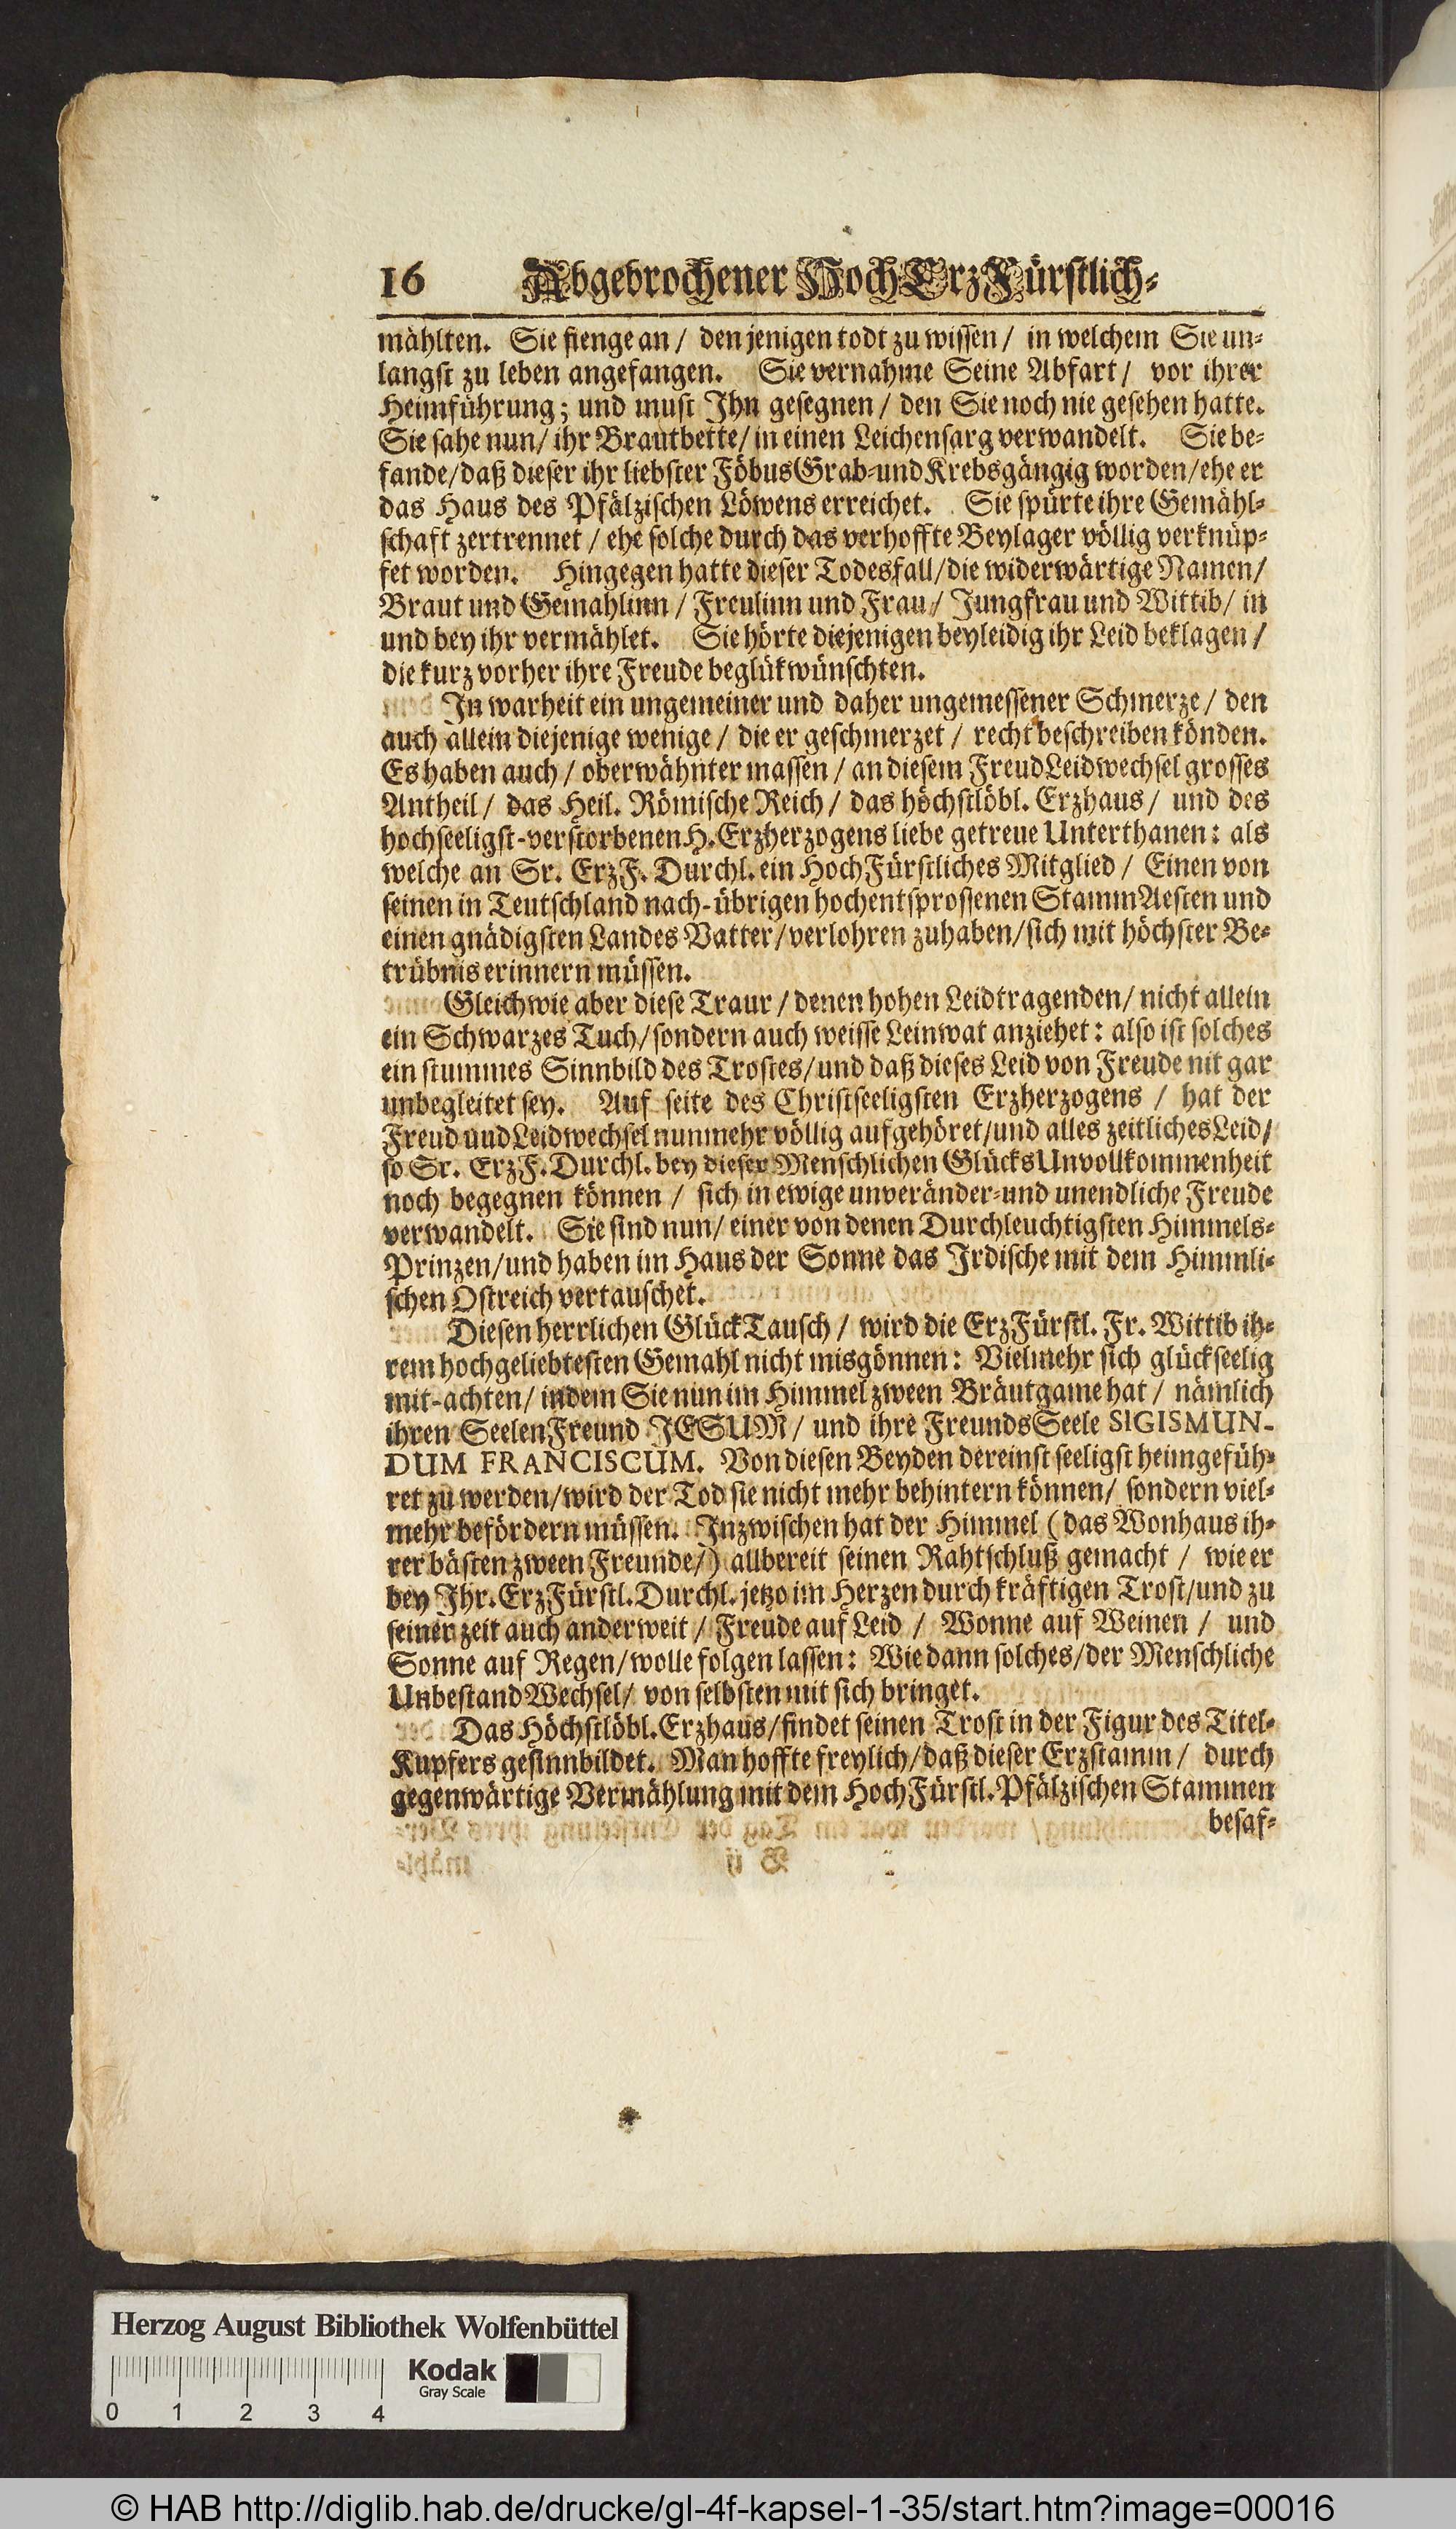 16 Abgebrochener HochErzFürstlich-
mählten. Sie fienge an / den jenigen todt zu wissen / in welchem Sie un-
langst zu leben angefangen. Sie vernahme Seine Abfart / vor ihrer
Heimführung; und must Ihn gesegnen / den Sie noch nie gesehen hatte.
Sie sahe nun / ihr Brautbette / in einen Leichensarg verwandelt. Sie be-
fande / daß dieser ihr liebster Föbus Grab- und Krebsgängig worden / ehe er
das Haus des Pfälzischen Löwens erreichet. Sie spürte ihre Gemähl-
schaft zertrennet / ehe solche durch das verhoffte Beylager völlig verknüp-
fet worden. Hingegen hatte dieser Todesfall / die widerwärtige Namen /
Braut und Gemahlinn / Freulinn und Frau / Jungfrau und Wittib / in
und bey ihr vermählet. Sie hörte diejenigen beyleidig ihr Leid beklagen /
die kurz vorher ihre Freude beglükwünschten.
In warheit ein ungemeiner und daher ungemessener Schmerze / den
auch allein diejenige wenige / die er geschmerzet / recht beschreiben könden.
Es haben auch / oberwähnter massen / an diesem FreudLeidwechsel grosses
Antheil / das Heil. Römische Reich / das höchstlöbl. Erzhaus / und des
hochseeligst-verstorbenen H. Erzherzogens liebe getreue Unterthanen: als
welche an Sr. ErzF. Durchl. ein HochFürstliches Mitglied / Einen von
seinen in Teutschland nach-übrigen hochentsprossenen StammAesten und
einen gnädigsten Landes Vatter / verlohren zuhaben / sich mit höchster Be-
trübnis erinnern müssen.
Gleichwie aber diese Traur / denen hohen Leidtragenden / nicht allein
ein Schwarzes Tuch / sondern auch weisse Leinwat anziehet: also ist solches
ein stummes Sinnbild des Trostes / und daß dieses Leid von Freude nit gar
unbegleitet sey. Auf seite des Christseeligsten Erzherzogens / hat der
Freud und Leidwechsel nunmehr völlig aufgehöret / und alles zeitliches Leid /
so Sr. ErzF. Durchl. bey dieser Menschlichen GlücksUnvollkommenheit
noch begegnen können / sich in ewige unveränder- und unendliche Freude
verwandelt. Sie sind nun / einer von denen Durchleuchtigsten Himmels-
Prinzen / und haben im Haus der Sonne das Irdische mit dem Himmli-
schen Ostreich vertauschet.
Diesen herrlichen GlückTausch / wird die ErzFürstl. Fr. Wittib ih-
rem hochgeliebtesten Gemahl nicht misgönnen: Vielmehr sich glückseelig
mit-achten / indem Sie nun im Himmel zween Bräutgame hat / nämlich
ihren SeelenFreund JESUM / und ihre FreundsSeele SIGISMUN-
DUM FRANCISCUM. Von diesen Beyden dereinst seeligst heimgefüh-
ret zu werden / wird der Tod sie nicht mehr behintern können / sondern viel-
mehr befördern müssen. Inzwischen hat der Himmel (das Wonhaus ih-
rer bästen zween Freunde /) allbereit seinen Rahtschluß gemacht / wie er
bey Ihr. ErzFürstl. Durchl. jetzo im Herzen durch kräftigen Trost / und zu
seiner zeit auch anderweit / Freude auf Leid / Wonne auf Weinen / und
Sonne auf Regen / wolle folgen lassen: Wie dann solches / der Menschliche
UnbestandWechsel / von selbsten mit sich bringet.
Das Höchstlöbl. Erzhaus / findet seinen Trost in der Figur des Titel-
Kupfers gesinnbildet. Man hoffte freylich / daß dieser Erzstamm / durch
gegenwärtige Vermählung mit dem HochFürstl. Pfälzischen Stammen
besaf-
Herzog August Bibliothek Wolfenbüttel
Kodak
Gray Scale
0 1 2 3 4
© HAB http://diglib.hab.de/drucke/gl-4f-kapsel-1-35/start.htm?image=00016